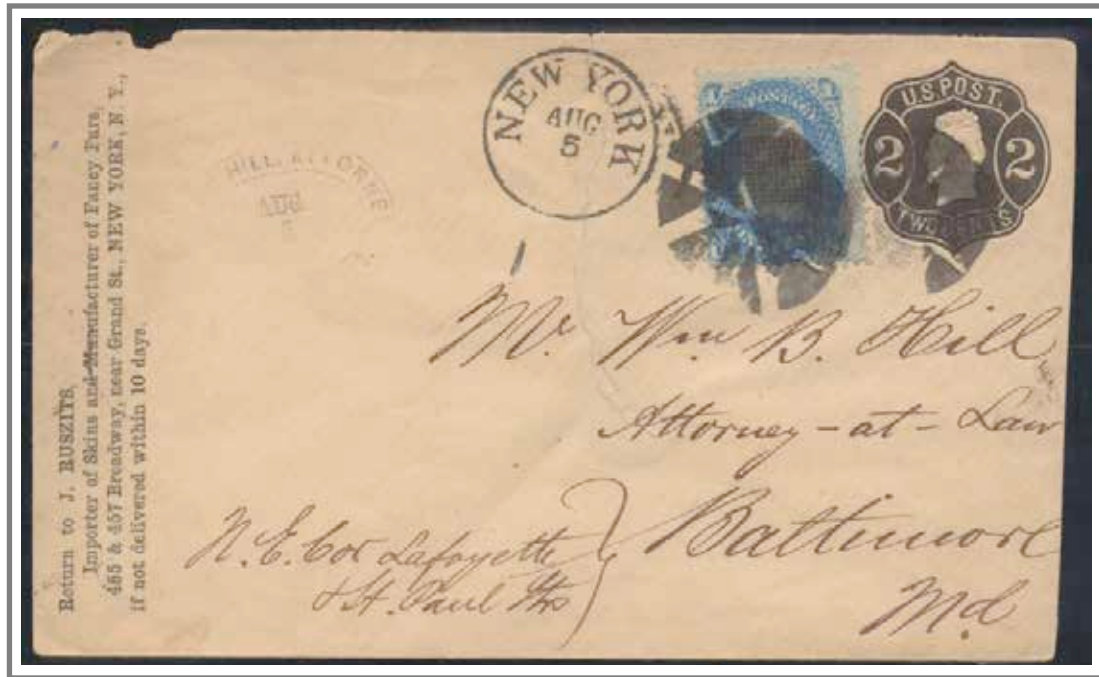 Return to J. RUSZITS,
Importer of Skins and Manufacturer of Fancy Furs,
455 & 457 Broadway, near Grand St., NEW YORK, N. Y.,
if not delivered within 10 days.
HILL, ATTORNE
AUG
NEW YORK
AUG
5
POSTAGE
U.S. POST.
2 2
TWO CENTS
Mr. Wm B. Hill
Attorney-at-Law
Baltimore
Md
N. E. Cor Lafayette
& St. Paul Sts